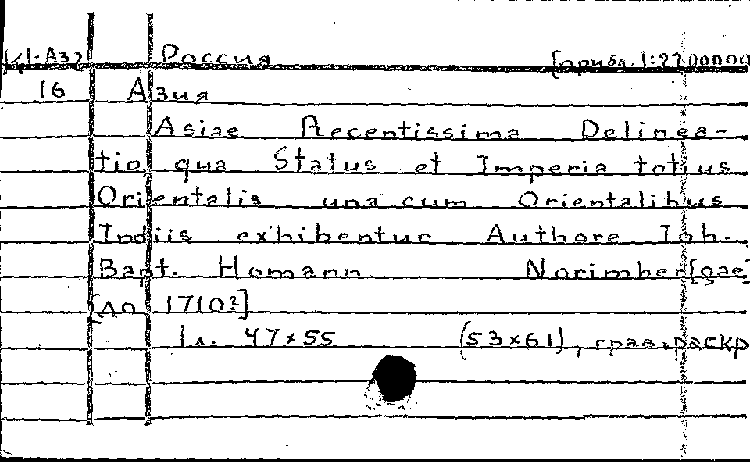 К1:Аз2 Россия [прибл. 1:22000000
16 Азия
Asiae Recentissima Delinea-
tio, qua Status et Imperia totius
Orientalis una cum Orientalibus
Indiis exhibentur Authore Ioh.
Bapt. Homann Norimber[gae]
[до 1710?]
1 л. 47×55 (53×61), грав., раскр